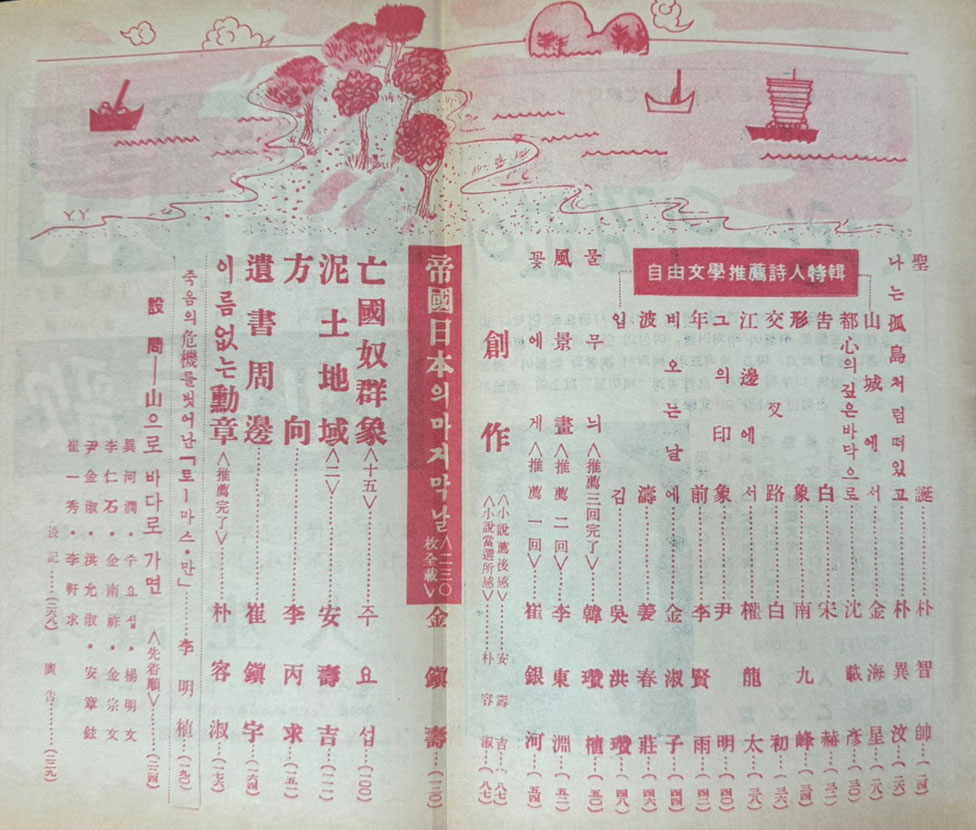 自由文學推薦詩人特輯
聖誕……朴智帥…(二四)
나는孤島처럼떠있고……朴異汶…(二六)
山城에서……金海星…(二八)
都心의깊은바닥으로……沈載彦…(三〇)
告白……宋赫…(三二)
形象……南九峰…(三四)
交叉路……白初…(三六)
江邊에서……權龍太…(三八)
그의印象……尹明…(四〇)
年前……李賢雨…(四二)
비오는날에……金淑子…(四四)
波濤……姜春莊…(四六)
입김……吳洪瓚…(四八)
물무늬<推薦三回完了>……韓瓚植…(五〇)
風景畫<推薦二回>……李東淵…(五二)
꽃에게<推薦一回>……崔銀河…(五四)
創作
<小說薦後感>……安壽吉…(八七)
<小說當選所感>……朴容淑…(八七)
帝國日本의마지막날<二三〇枚全載>金鎭壽…(一二〇)
亡國奴群象<十五>……주요섭…(一〇〇)
泥土地域<二>……安壽吉…(一一一)
方向……李丙求…(一五一)
遺書周邊……崔鎭宇…(一六四)
이름없는勳章<推薦完了>……朴容淑…(一七六)
죽음의危機를벗어난「토ー마스·만」……李明植…(一九〇)
設問——山으로 바다로 가면 <先着順>……(二三四)
異河潤·주요섭·楊明文
李仁石·金南祚·金宗文
尹金淑·洪允淑·安章鉉
崔一秀·李軒求
後記……(二六八) 廣告……(二三九)